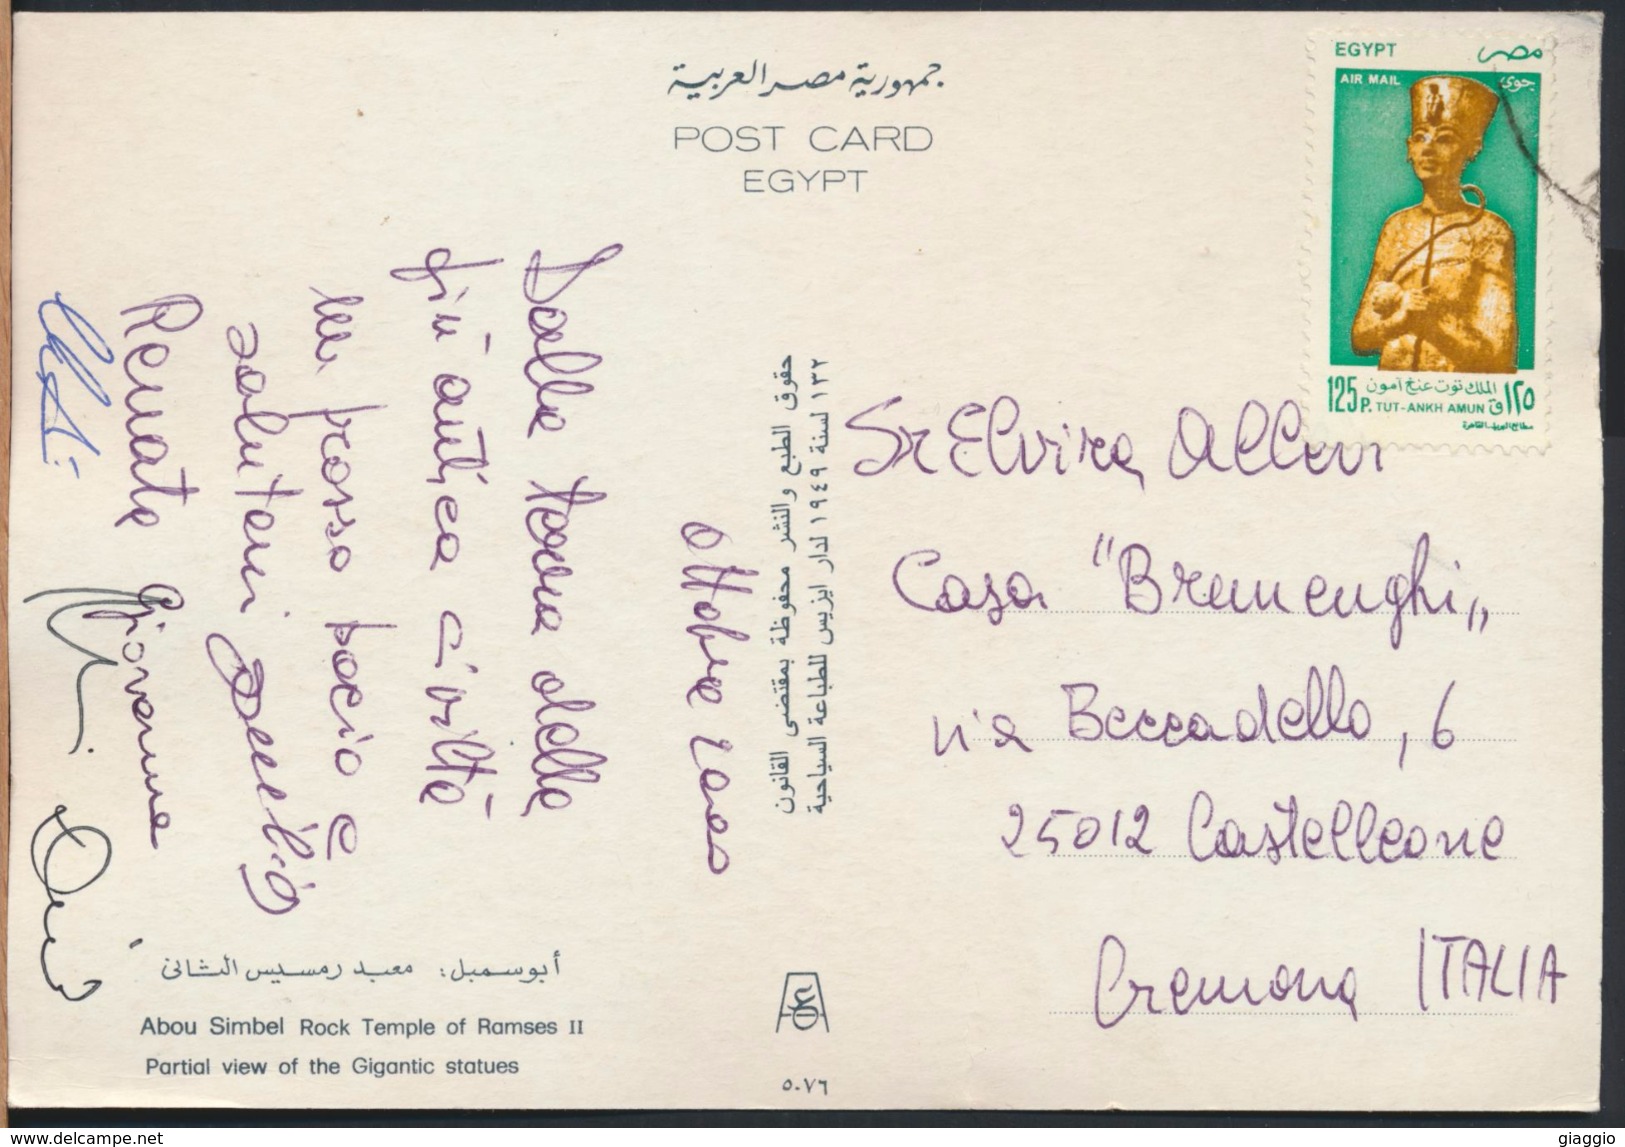 جمهورية مصر العربية
POST CARD
EGYPT
EGYPT مصر
AIR MAIL جوى
الملك توت عنخ آمون
125 P. TUT-ANKH AMUN ١٢٥ ق
حقوق الطبع والنشر محفوظة بمقتضى القانون
١٣٢ لسنة ١٩٤٩ لدار ايزيس للطباعة السياحية
Ottobre 2000
Dalla terra della
più antica civiltà
un grosso bacio e
saluteri
Renata Giovanna
Sr Elvira Allevi
Casa "Bremenghi"
via Beccadello, 6
25012 Castelleone
Cremona ITALIA
أبو سمبل: معبد رمسيس الثانى
Abou Simbel Rock Temple of Ramses II
Partial view of the Gigantic statues
٥٠٧٦
www.delcampe.net
giaggio